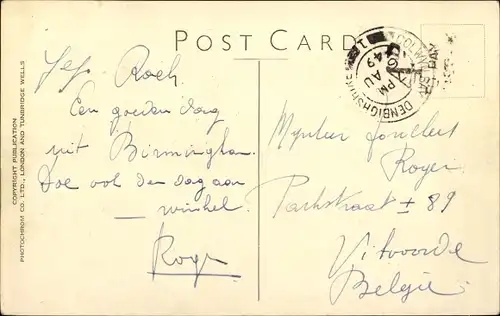 POST CARD
COLWYN BAY
DENBIGHSHIRE
PM
AU
49
COPYRIGHT PUBLICATION
PHOTOCHROM CO. LTD., LONDON AND TUNBRIDGE WELLS
Een goeden dag
uit Birmingham.
Doe ook den dag aan
winkel.
Roger
Roger
Parkstraat ± 89
Vilvoorde
Belgie